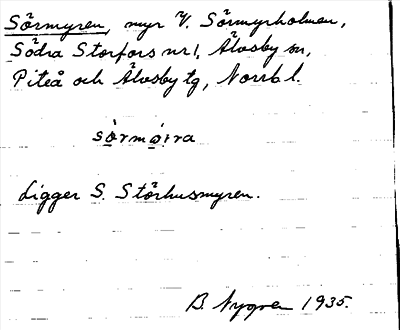 Sörmyren, myr V. Sörmyrholmen,
Södra Storfors nr 1, Älvsby sn,
Piteå och Älvsby tg, Norrb l.
sörmö̀ı̀ra
Ligger S. Störhusmyren.
B. Nygren 1935.